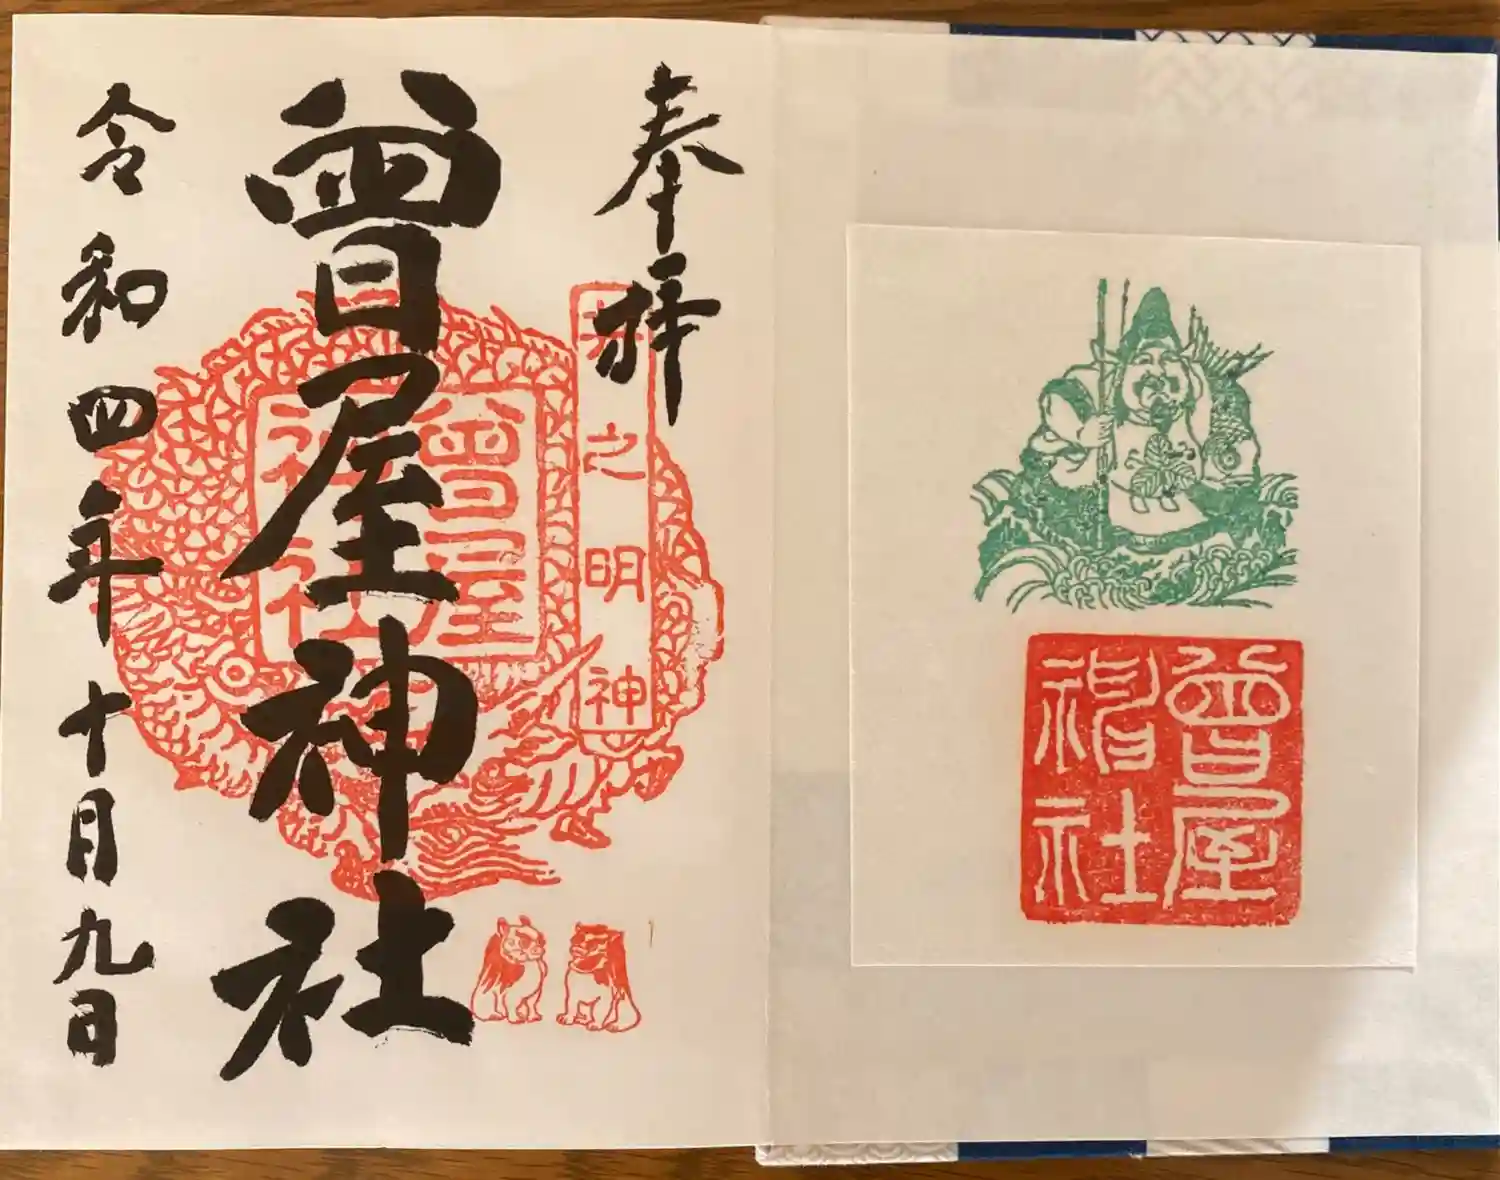 奉拝
曾屋神社
令和四年十月九日
井之明神
曾屋
神社
曾屋
神社